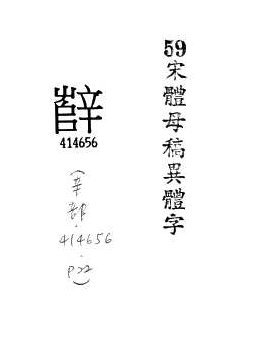 59宋體母稿異體字
414656
(辛部.414656.P22)